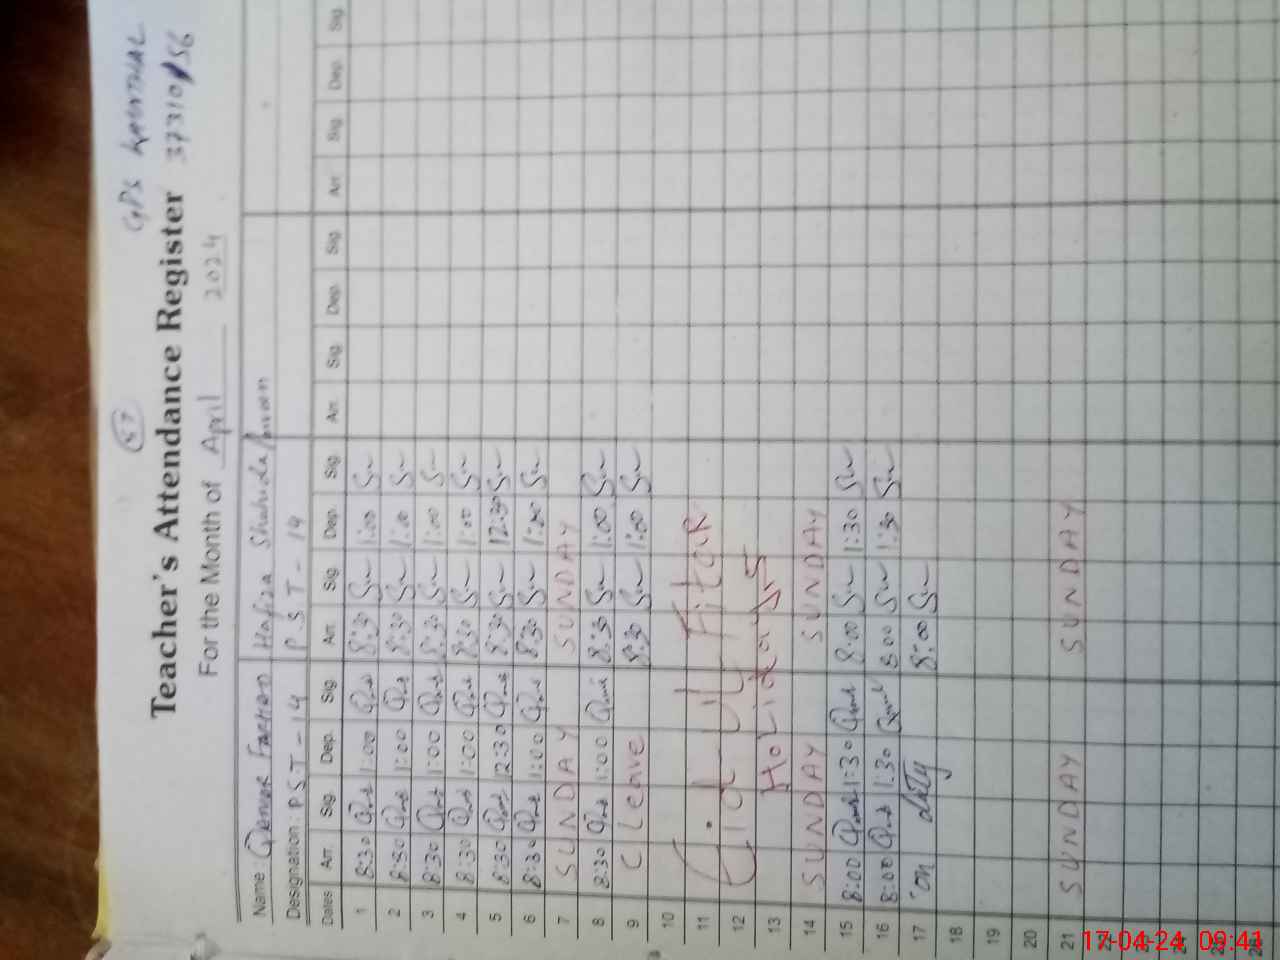 GPS
57
Teacher's Attendance Register 37310156
For the Month of April 2024
Name: Qamar Hafiza
Designation: PST-14 P.S.T-14
Dates Arr. Sig Dep. Sig Arr. Sig Dep. Sig Arr. Sig Dep. Sig Arr. Sig Dep. Sig
1 8:30 1:00 8:30 1:00
2 8:30 1:00 8:30 1:00
3 8:30 1:00 8:30 1:00
4 8:30 1:00 8:30 1:00
5 8:30 12:30 8:30 12:30
6 8:30 1:00 8:30 1:00
7 SUNDAY SUNDAY
8 8:30 1:00 8:30 1:00
9 C Leave 8:30 1:00
10
11 Eid ul FitaR
12
13 HoLidayS
14 SUNDAY SUNDAY
15 8:00 1:30 8:00 1:30
16 8:00 1:30 8:00 1:30
17 on duty 8:00
18
19
20
21 SUNDAY SUNDAY
22
23
24
25
26
17-04-24 09:41